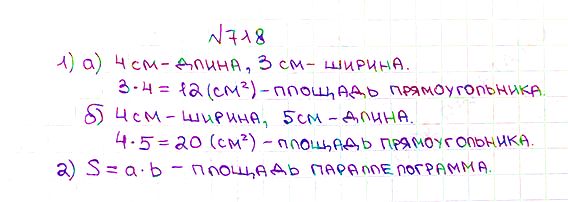 №718
1) а) 4 см - длина, 3 см - ширина.
3·4 = 12 (см²) - площадь прямоугольника.
б) 4 см - ширина, 5 см - длина.
4·5 = 20 (см²) - площадь прямоугольника.
2) S = a·b - площадь параллелограмма.